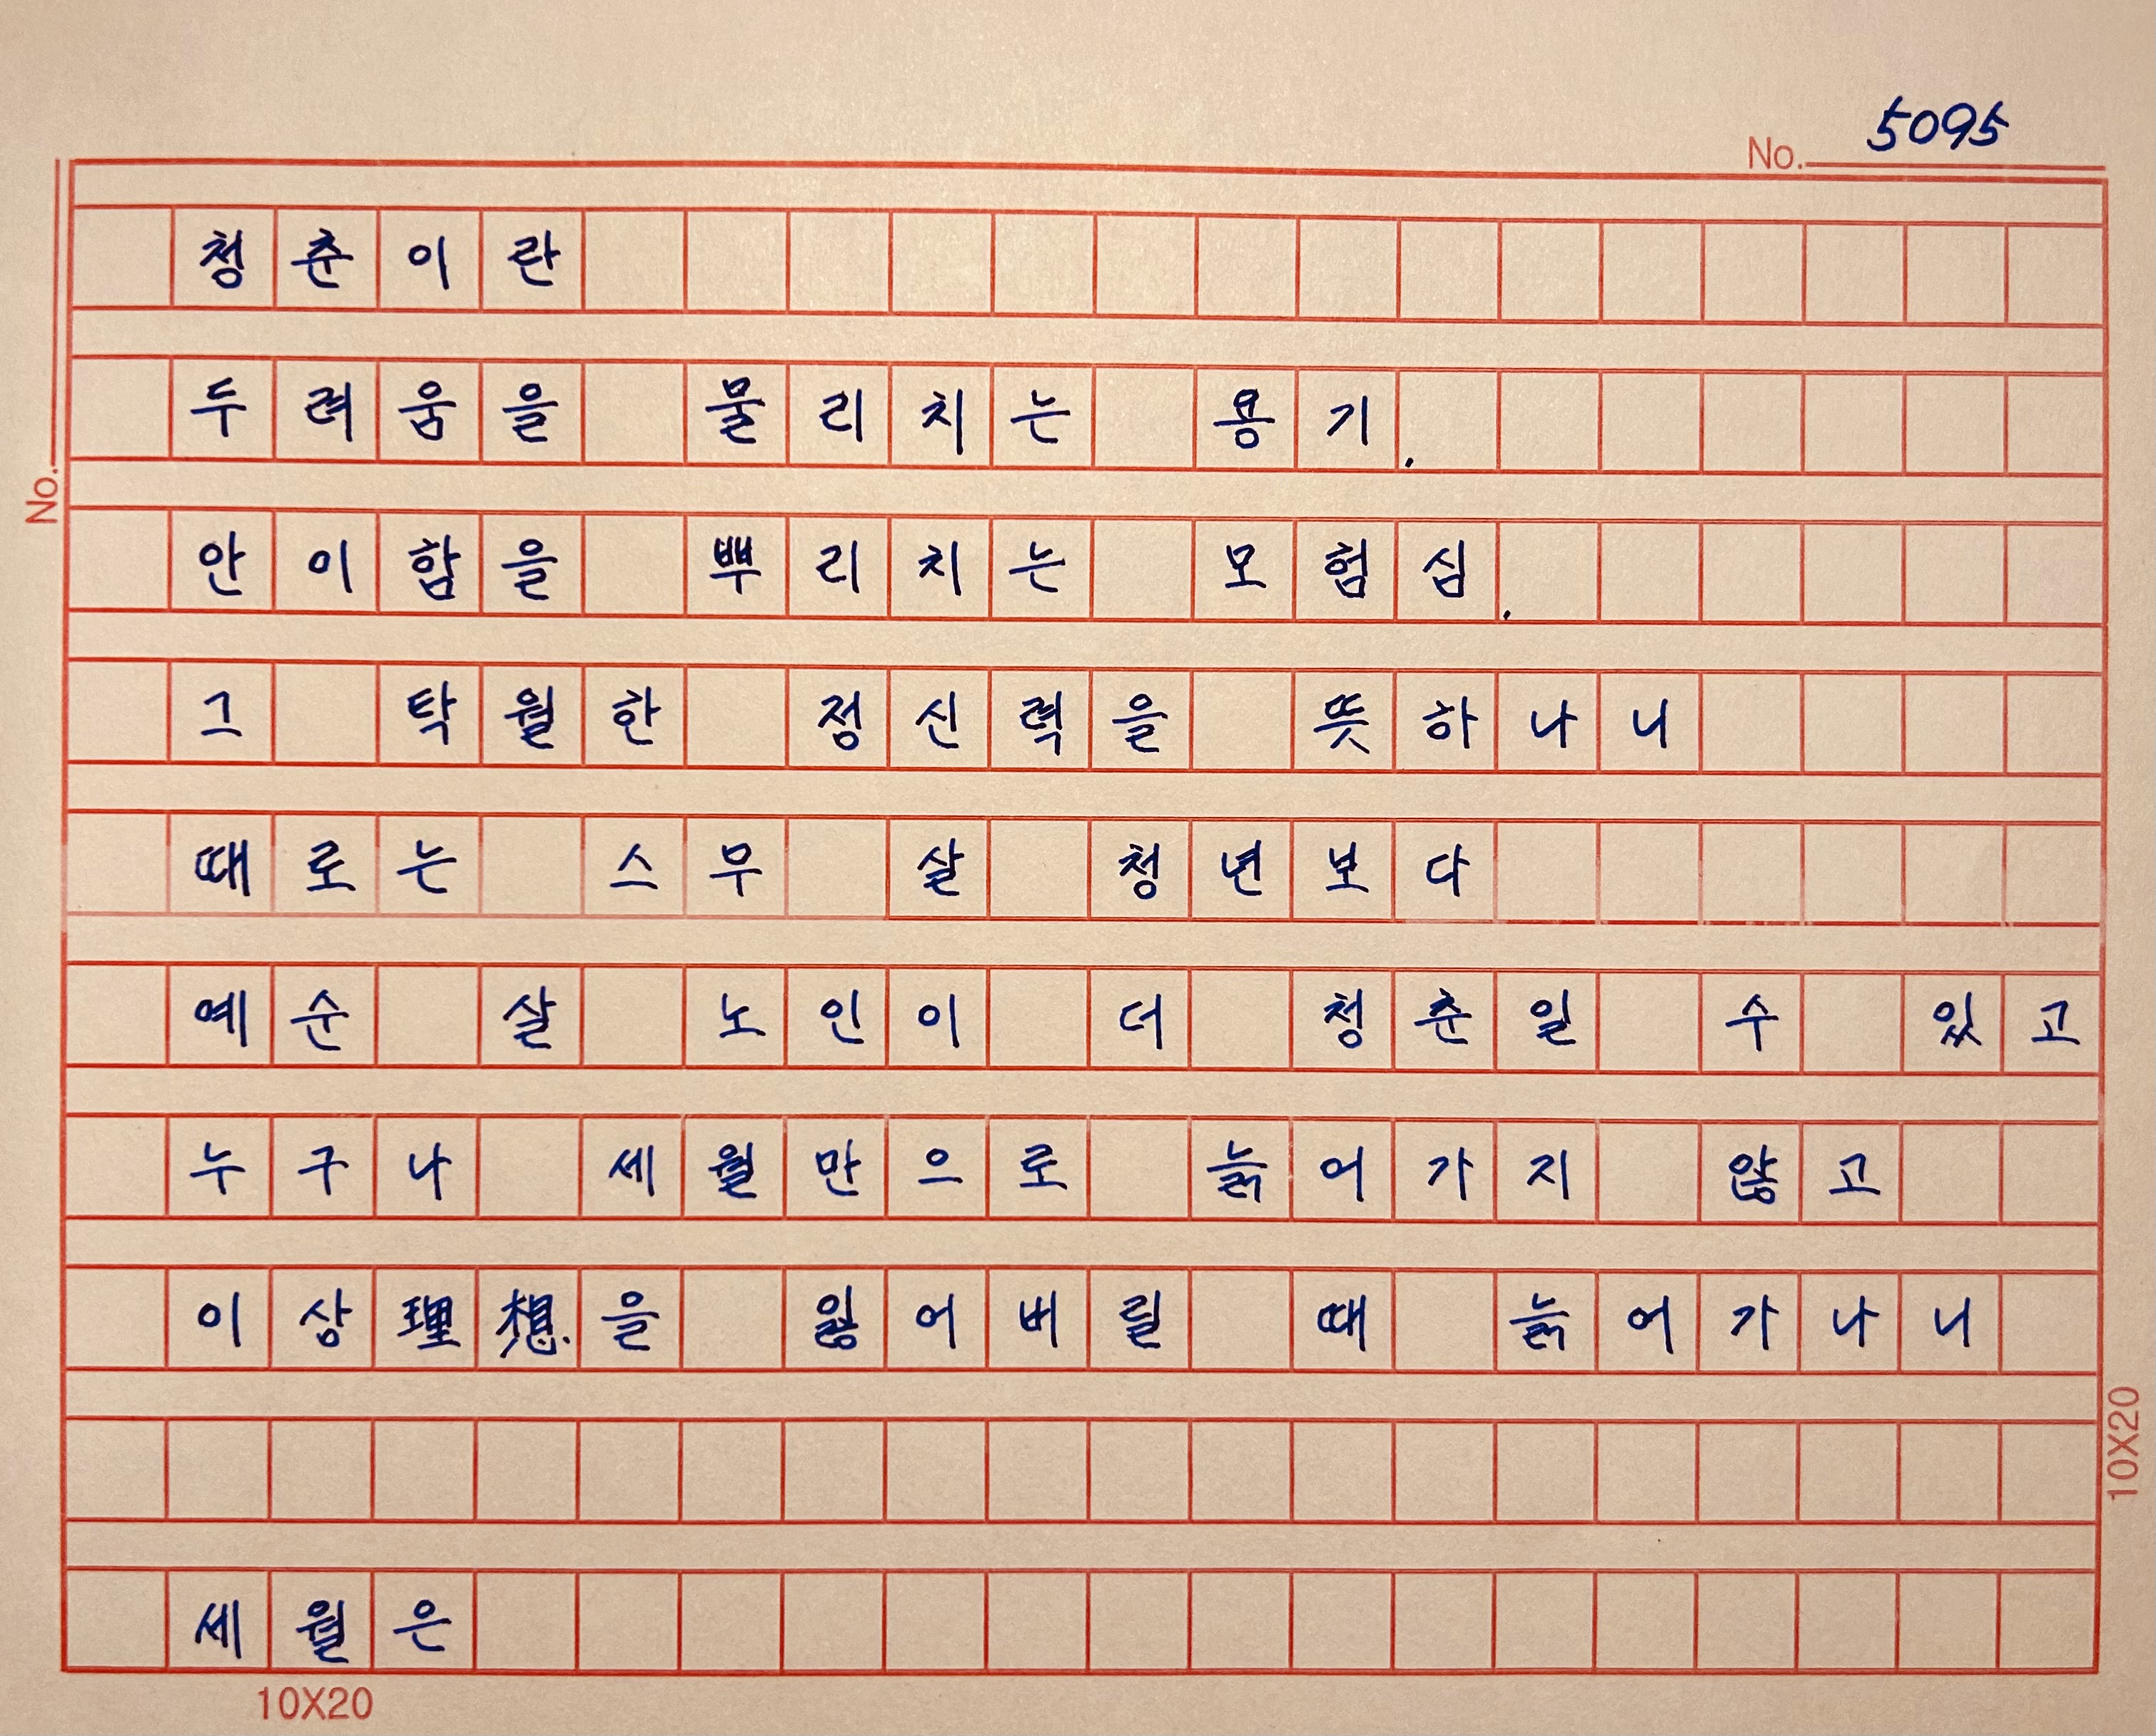 No. 5095
청춘이란
두려움을 물리치는 용기.
안이함을 뿌리치는 모험심.
그 탁월한 정신력을 뜻하나니
때로는 스무 살 청년보다
예순 살 노인이 더 청춘일 수 있고
누구나 세월만으로 늙어가지 않고
이상理想을 잃어버릴 때 늙어가나니
세월은
No.
10X20
10X20